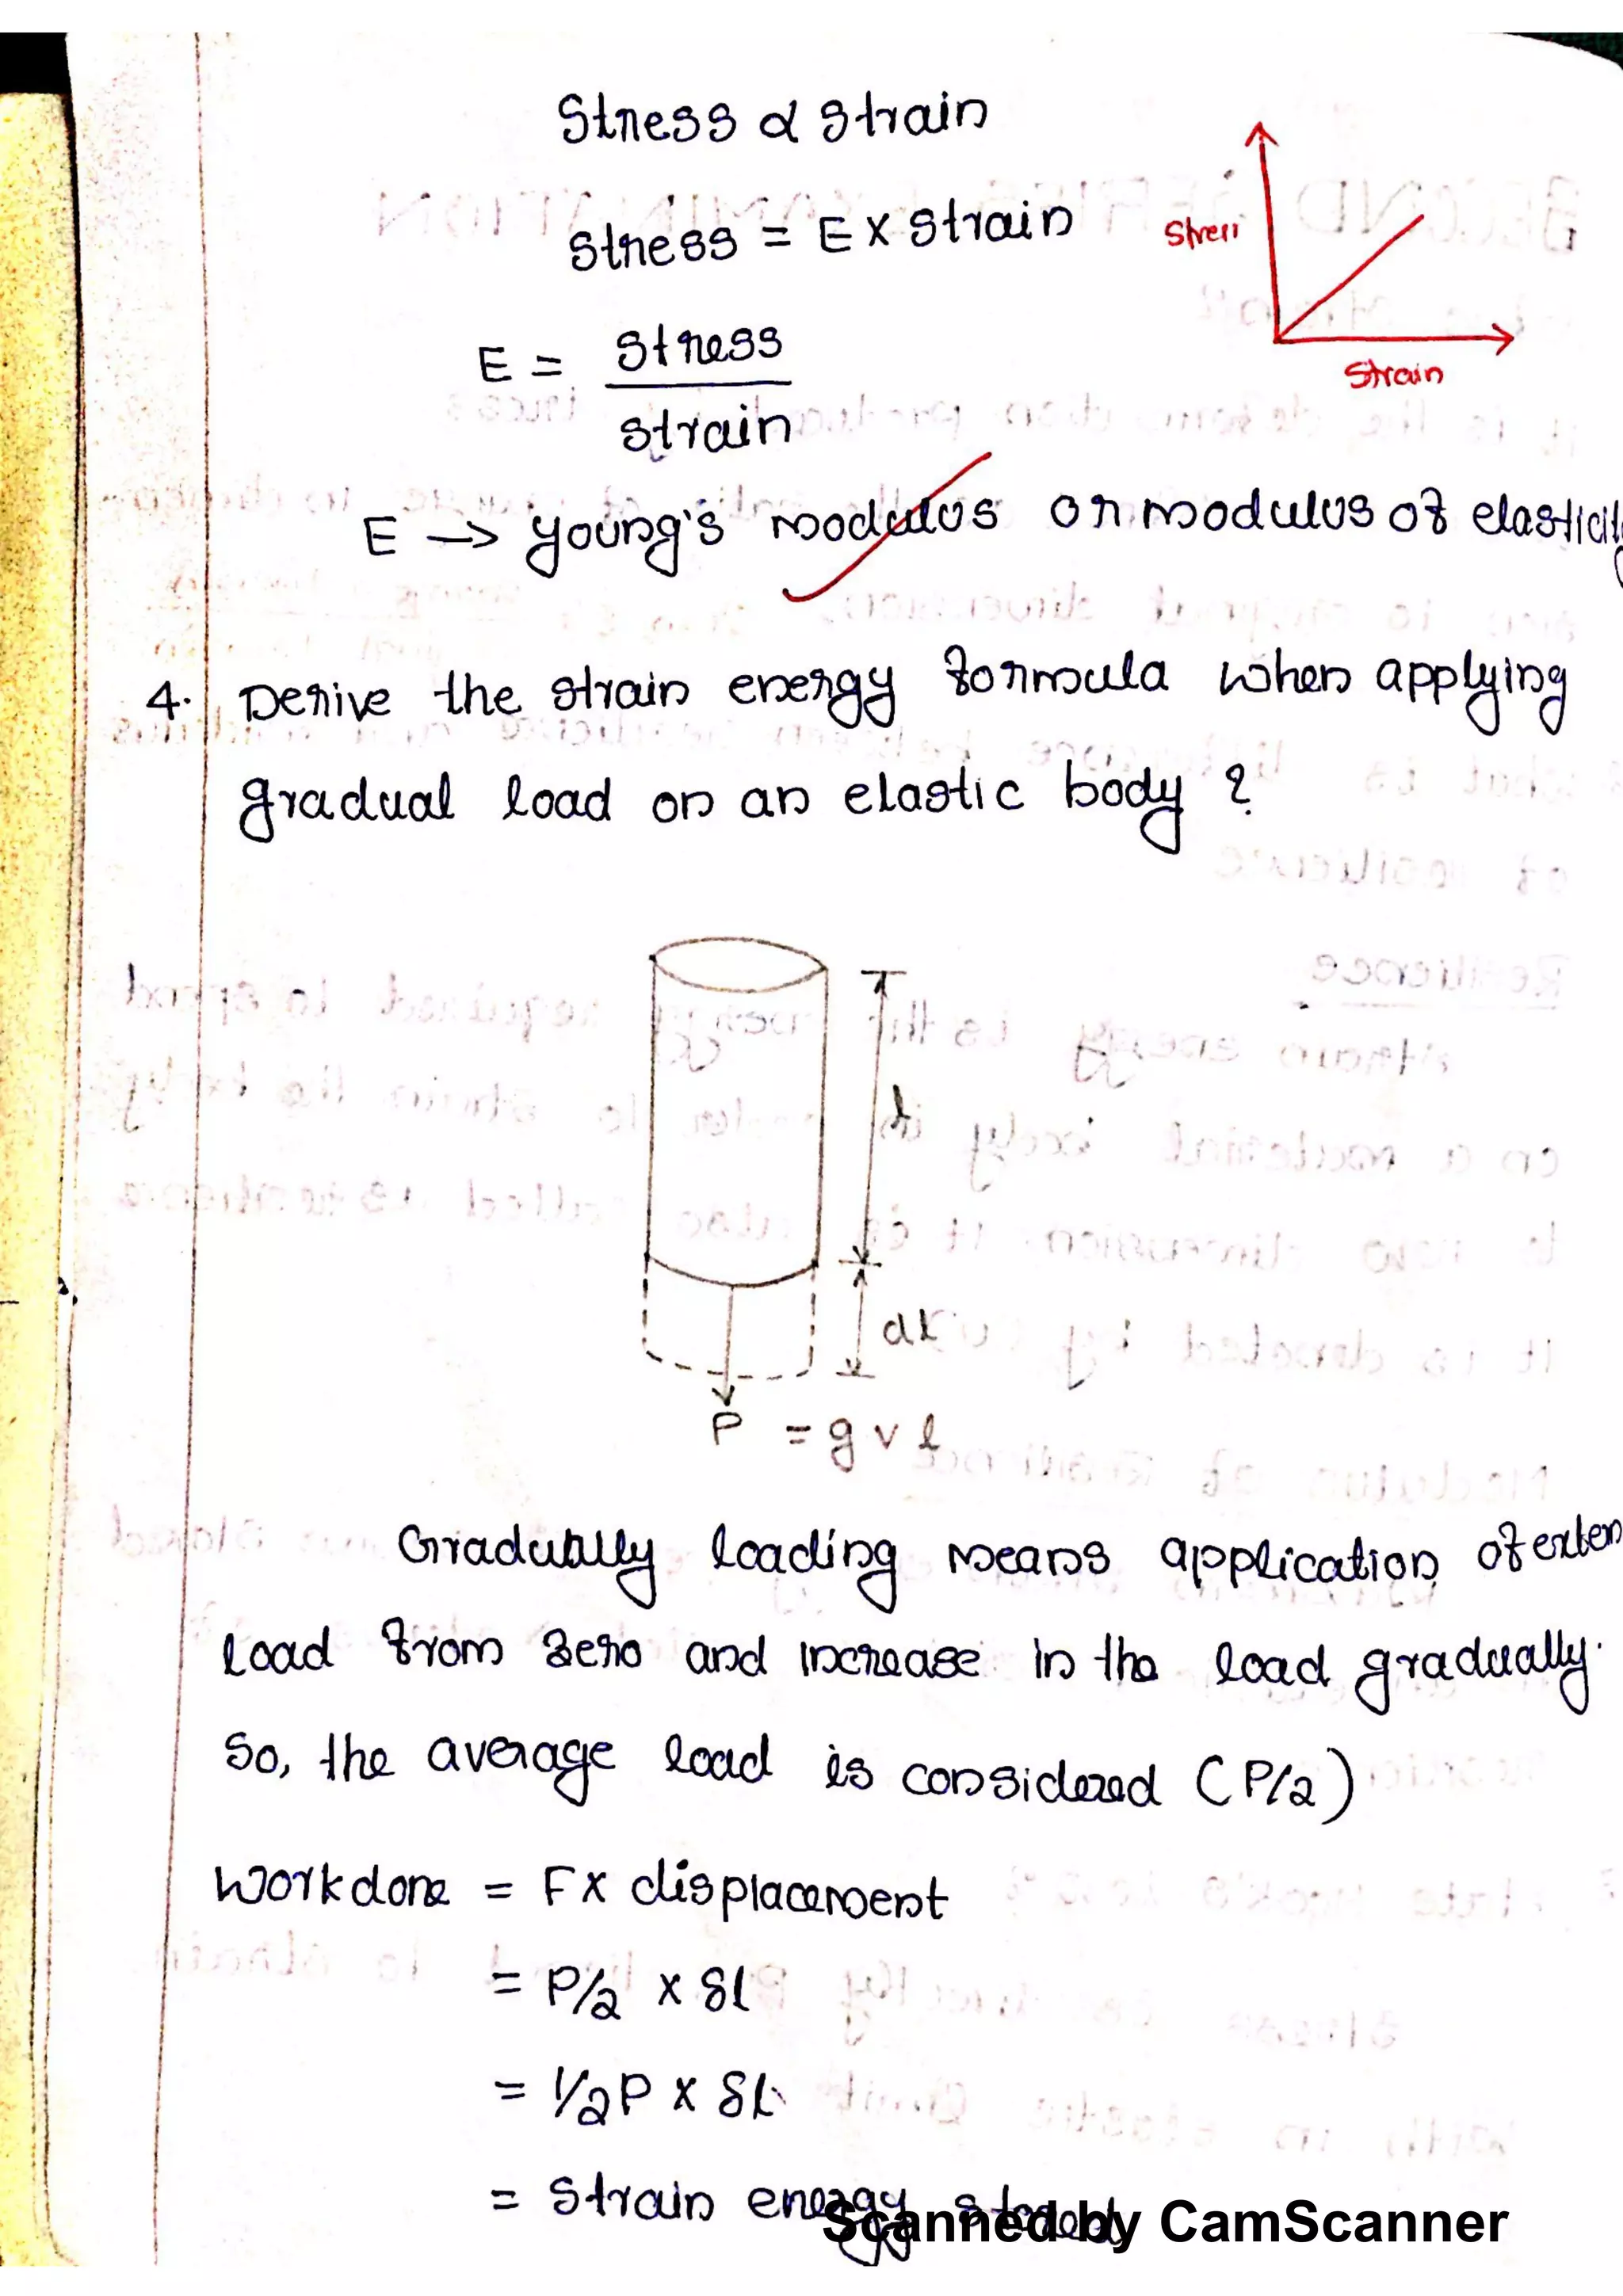 Stress α strain
stress = E x strain
Stress
Strain
E = stress / strain
E → young's modulus or modulus of elasticity
4. Derive the strain energy formula when applying
gradual load on an elastic body ?
l
dl
P = g v l
Gradually loading means application of extern
load from zero and increase in the load gradually.
So, the average load is considered (P/2)
Workdone = F x displacement
= P/2 x δl
= 1/2 P x δl
= Strain energy stored
Scanned by CamScanner